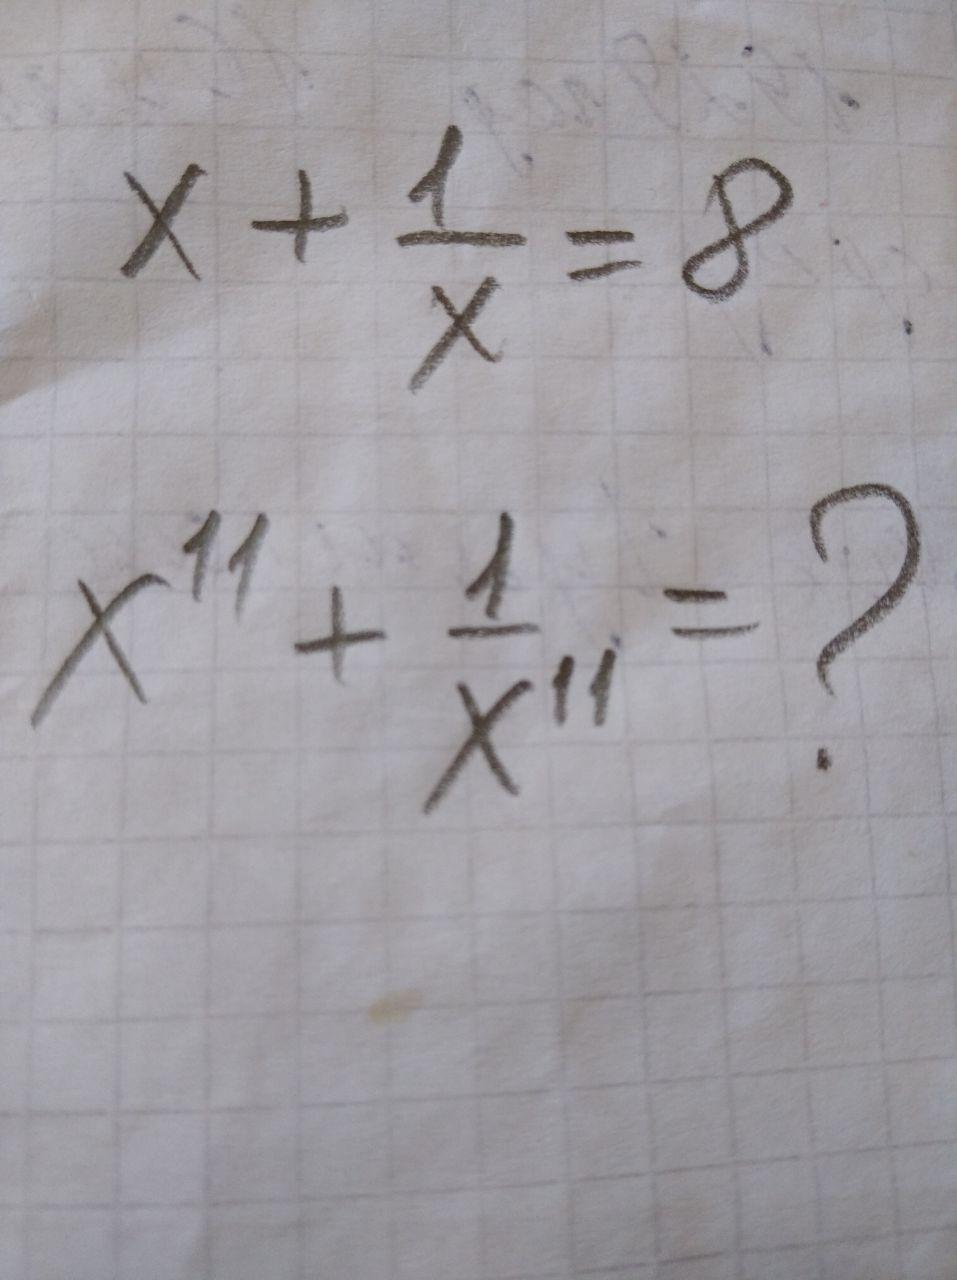 x + 1/x = 8
x¹¹ + 1/x¹¹ = ?